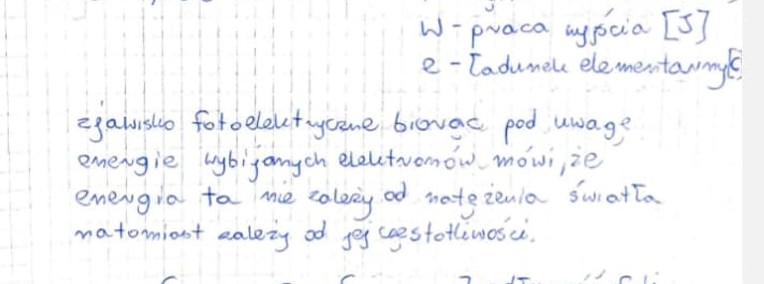 W - praca wyjścia [J]
e - Ładunek elementarny [C]
zjawisko fotoelektryczne, biorąc pod uwagę
energię wybijanych elektronów mówi, że
energia ta nie zależy od natężenia światła
natomiast zależy od jej częstotliwości.